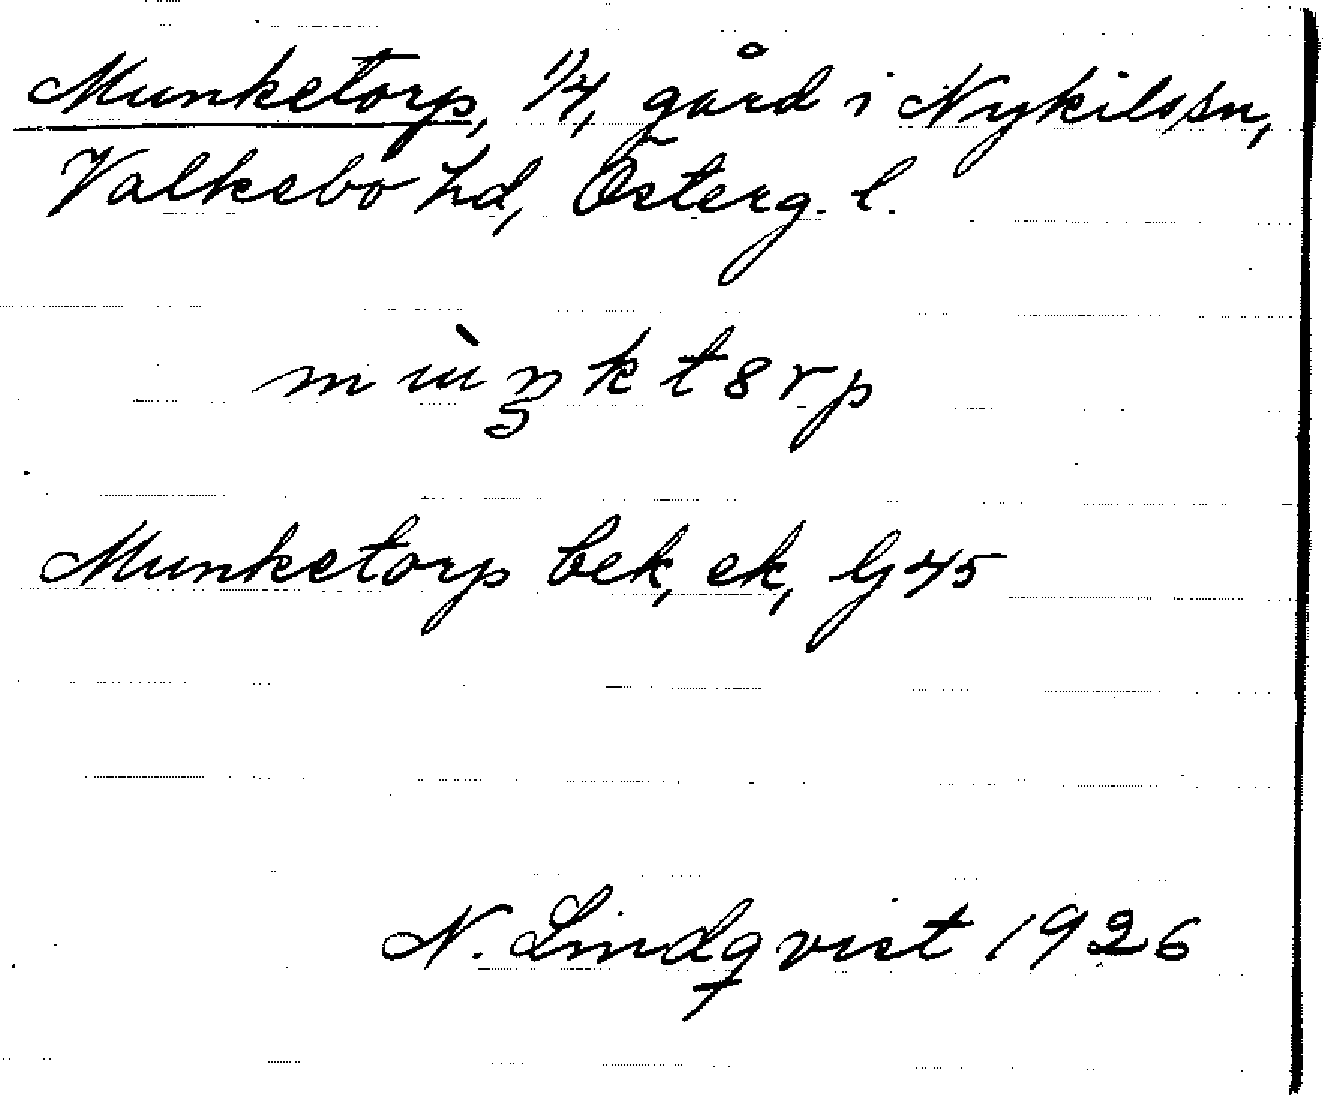 Munketorp, 1/4, gård i Nykils sn,
Valkebo hd, Österg. l.
mùŋktȣrp
Munketorp bek, ek, Gj 45
N. Lindqvist 1926